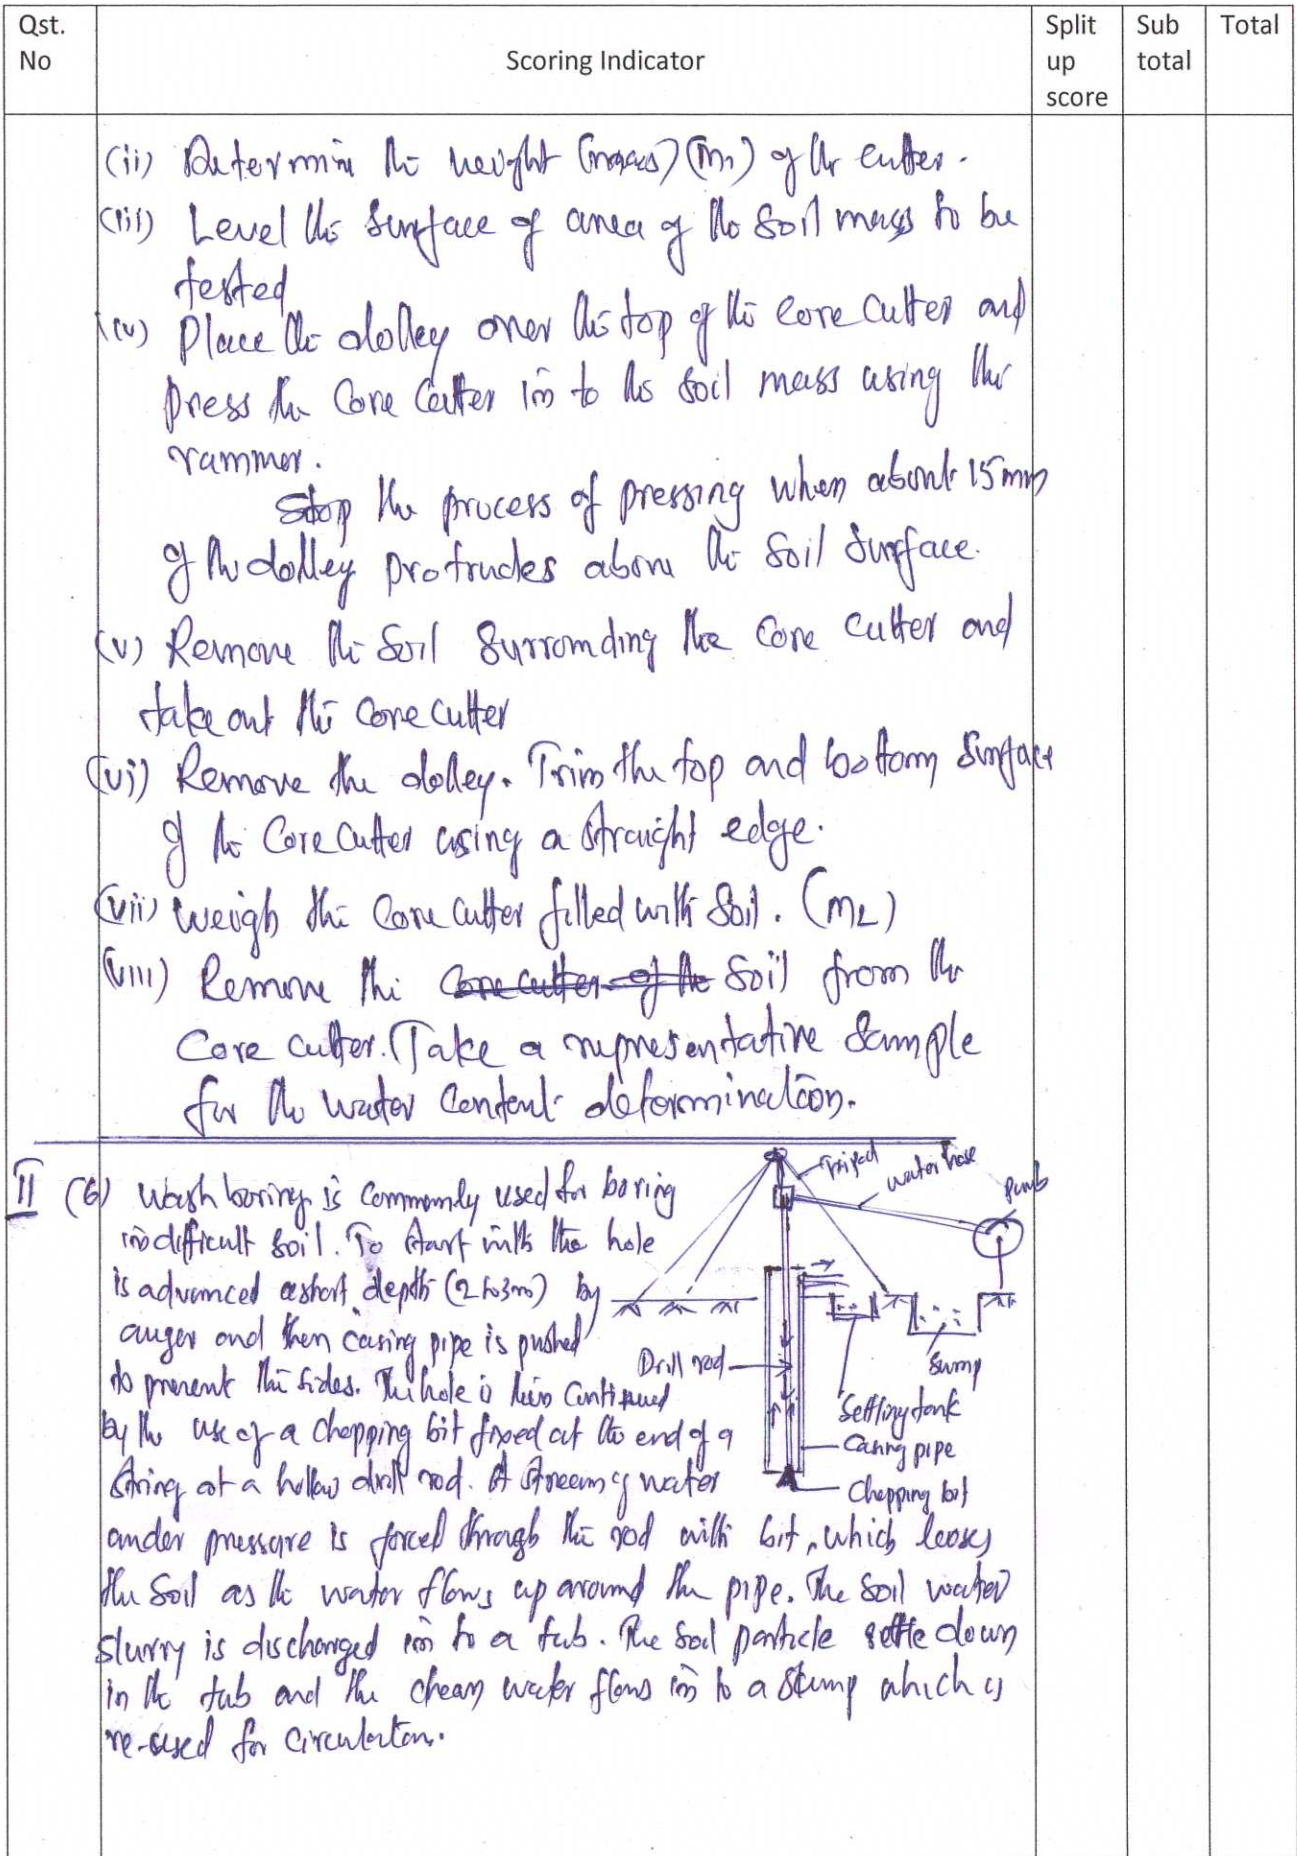 Qst. No
Scoring Indicator
Split up score
Sub total
Total
(ii) Determine the weight (mass) (m1) of the cutter.
(iii) Level the surface of area of the soil mass to be
tested
(iv) Place the dolley over the top of the core cutter and
press the core cutter in to the soil mass using the
rammer.
Stop the process of pressing when about 15mm
of the dolley protrudes above the soil surface.
(v) Remove the soil surrounding the core cutter and
take out the core cutter
(vi) Remove the dolley. Trim the top and bottom surface
of the core cutter using a straight edge.
(vii) weigh the core cutter filled with soil. (m2)
(viii) Remove the core cutter of the soil from the
core cutter. Take a representative sample
for the water content determination.
II (6) Wash boring is commonly used for boring
in difficult soil. To start with the hole
is advanced a short depth (2 to 3m) by
auger and then casing pipe is pushed
to prevent the sides. The hole is then continued
by the use of a chopping bit fixed at the end of a
string of a hollow drill rod. A stream of water
under pressure is forced through the rod with bit, which looses
the soil as the water flows up around the pipe. The soil water
slurry is discharged in to a tub. The soil particle settle down
in the tub and the clean water flows in to a stump which is
re-used for circulation.
Tripod
water hose
pump
Drill rod
Sump
Settling tank
Casing pipe
Chopping bit